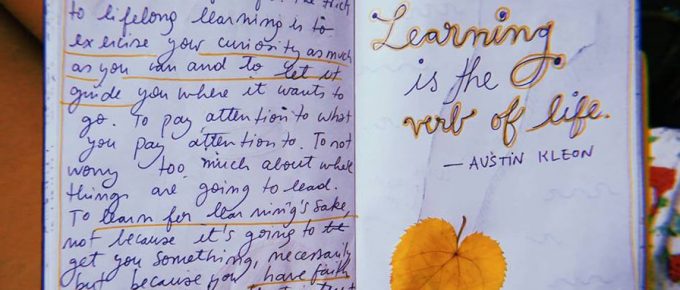 to lifelong learning is to
exercise your curiosity as much
as you can and to let it
guide you where it wants to
go. To pay attention to what
you pay attention to. To not
worry too much about where
things are going to lead.
To learn for learning's sake,
not because it's going to
get you something, necessarily
but because you have faith
Learning
is the
verb of life.
— AUSTIN KLEON